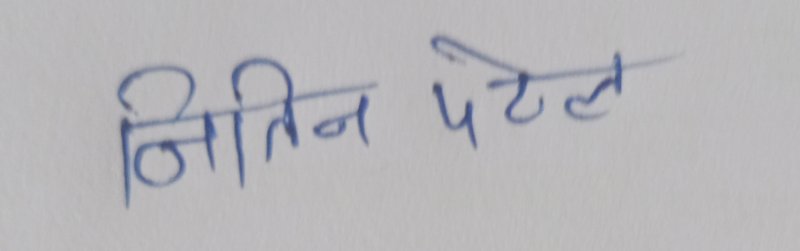 नितिन पटेल